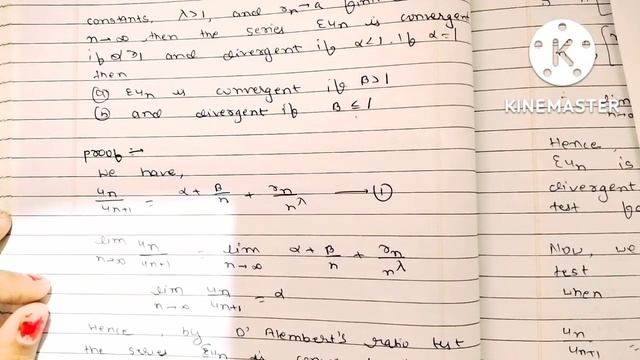 constants, λ>1, and rn→a
n→∞ then the series Σun is convergent
if α>1 and divergent if α<1. If α=1
then
(a) Σun is convergent if β>1
(b) and divergent if β ≤ 1
proof :-
We have,
un/un+1 = α + β/n + rn/nλ ——① 
lim n→∞ un/un+1 = lim n→∞ α + β/n + rn/nλ
lim n→∞ un/un+1 = α
Hence, by D'Alembert's ratio test
the series Σun is
KINEMASTER
Hence,
Σun is
divergent
test
Now, we
test
when
un
un+1 =